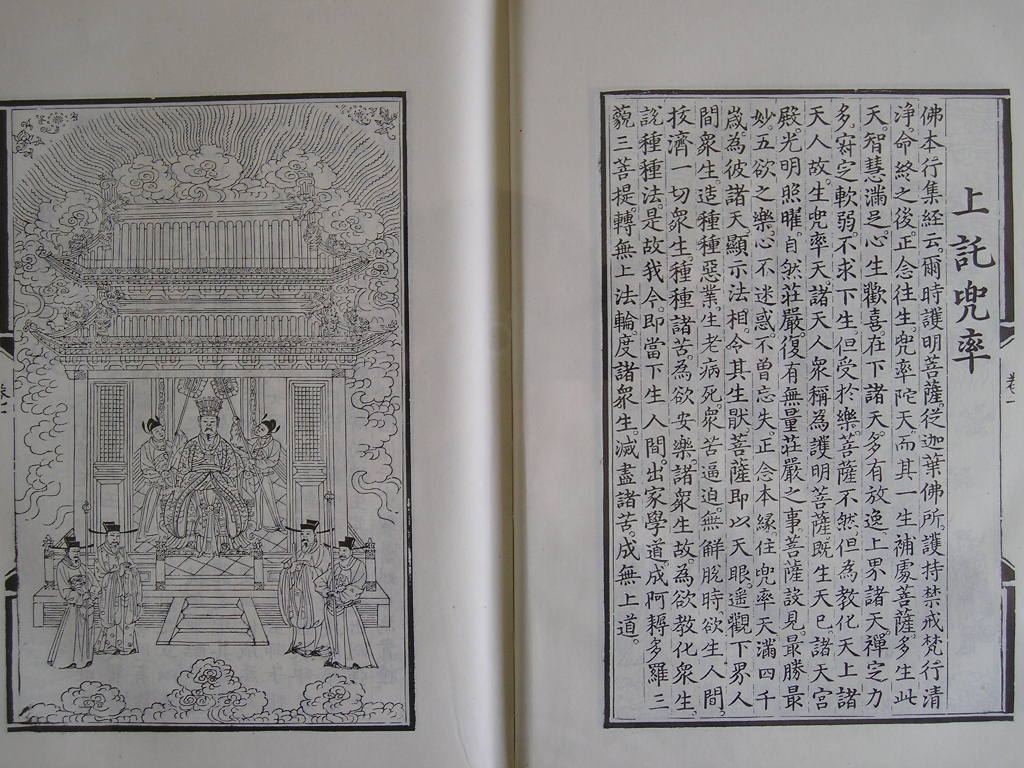 上託兜率
佛本行集經云。爾時護明菩薩。從迦葉佛所。護持禁戒。梵行清
淨。命終之後。正念往生。兜率陀天。而其一生補處菩薩。多生此
天。智慧滿足。心生歡喜。在下諸天。多有放逸。上界諸天。禪定力
多。寂定軟弱。不求下生。但受於樂。菩薩不然。但為教化天上諸
天人故。生兜率天。諸天人眾。稱為護明菩薩。既生天已。諸天宮
殿。光明照曜。自然莊嚴。復有無量莊嚴之事。菩薩設見。最勝最
妙。五欲之樂。心不迷惑。不曾忘失。正念本緣。住兜率天。滿四千
歲。為彼諸天。顯示法相。令其生猒。菩薩即以天眼。遥觀下界人
間眾生。造種種惡業。生老病死。眾苦逼迫。無解脫時。欲生人間。
拔濟一切眾生。種種諸苦。為欲安樂諸眾生故。為欲教化眾生。
說種種法。是故我今。即當下生人間。出家學道。成阿耨多羅三
藐三菩提。轉無上法輪。度諸眾生。滅盡諸苦。成無上道。
卷一